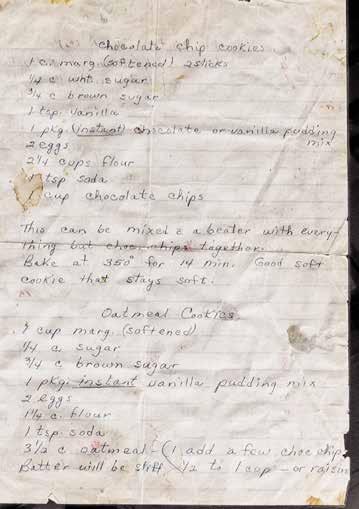 Chocolate Chip Cookies
1 c. marg. (softened) 2 sticks
1/4 c. wht. sugar
3/4 c brown sugar
1 tsp. vanilla
1 pkg. (instant) chocolate or vanilla pudding
mix
2 eggs
2 1/4 cups flour
1 tsp soda
1 cup chocolate chips
This can be mixed c a beater with every-
thing but choc. chips together.
Bake at 350° for 14 min. Good soft
cookie that stays soft.
Oatmeal Cookies
1 cup marg. (softened)
1/4 c. sugar
3/4 c brown sugar
1 pkg. instant vanilla pudding mix
2 eggs
1 1/4 c. flour
1 tsp. soda
3 1/2 c. oatmeal - (I add a few choc chip
Batter will be stiff 1/2 to 1 cup - or raisin